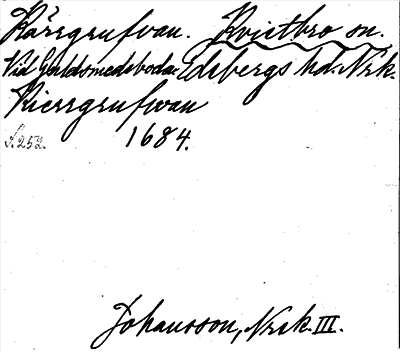 Kärrgrufvan. Kvistbro sn.
Vid Guldsmedsboda. Edsbergs hd. Nrk.
Kierrgrufwan
1684.
S. 252.
Johansson, Nrk. III.